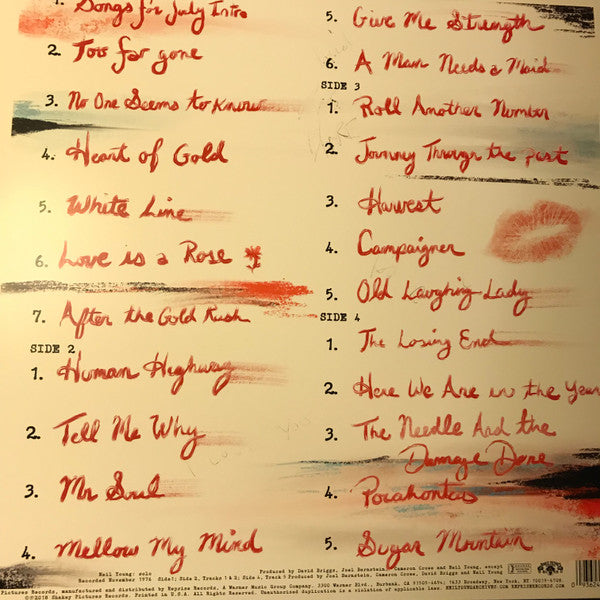 1. Songs for July Intro
2. Too far gone
3. No One Seems to Know
4. Heart of Gold
5. White Line
6. Love is a Rose
7. After the Gold Rush
SIDE 2
1. Human Highway
2. Tell Me Why
3. Mr Soul
4. Mellow My Mind
5. Give Me Strength
6. A Man Needs a Maid
SIDE 3
1. Roll Another Number
2. Journey Through the Past
3. Harvest
4. Campaigner
5. Old Laughing Lady
SIDE 4
1. The Losing End
2. Here We Are in the Years
3. The Needle And the
Damage Done
4. Pocahontas
5. Sugar Mountain
Neil Young: solo
Recorded November 1976
Produced by David Briggs, Joel Bernstein, Cameron Crowe and Neil Young, except
Side 1; Side 2, Tracks 1 & 2; Side 4, Track 5 Produced by Joel Bernstein, Cameron Crowe, David Briggs and Neil Young
Pictures Records, manufactured and distributed by Reprise Records, A Warner Music Group Company. 3300 Warner Blvd., Burbank, CA 91505-4694; 1633 Broadway, New York, NY 10019-6708.
©2018 Shakey Pictures Records. Printed in U.S.A. All Rights Reserved. Unauthorized duplication is a violation of applicable laws. NEILYOUNGARCHIVES.COM REPRISERECORDS.COM